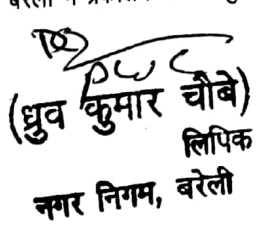 (ध्रुव कुमार चौबे)
लिपिक
नगर निगम, बरेली